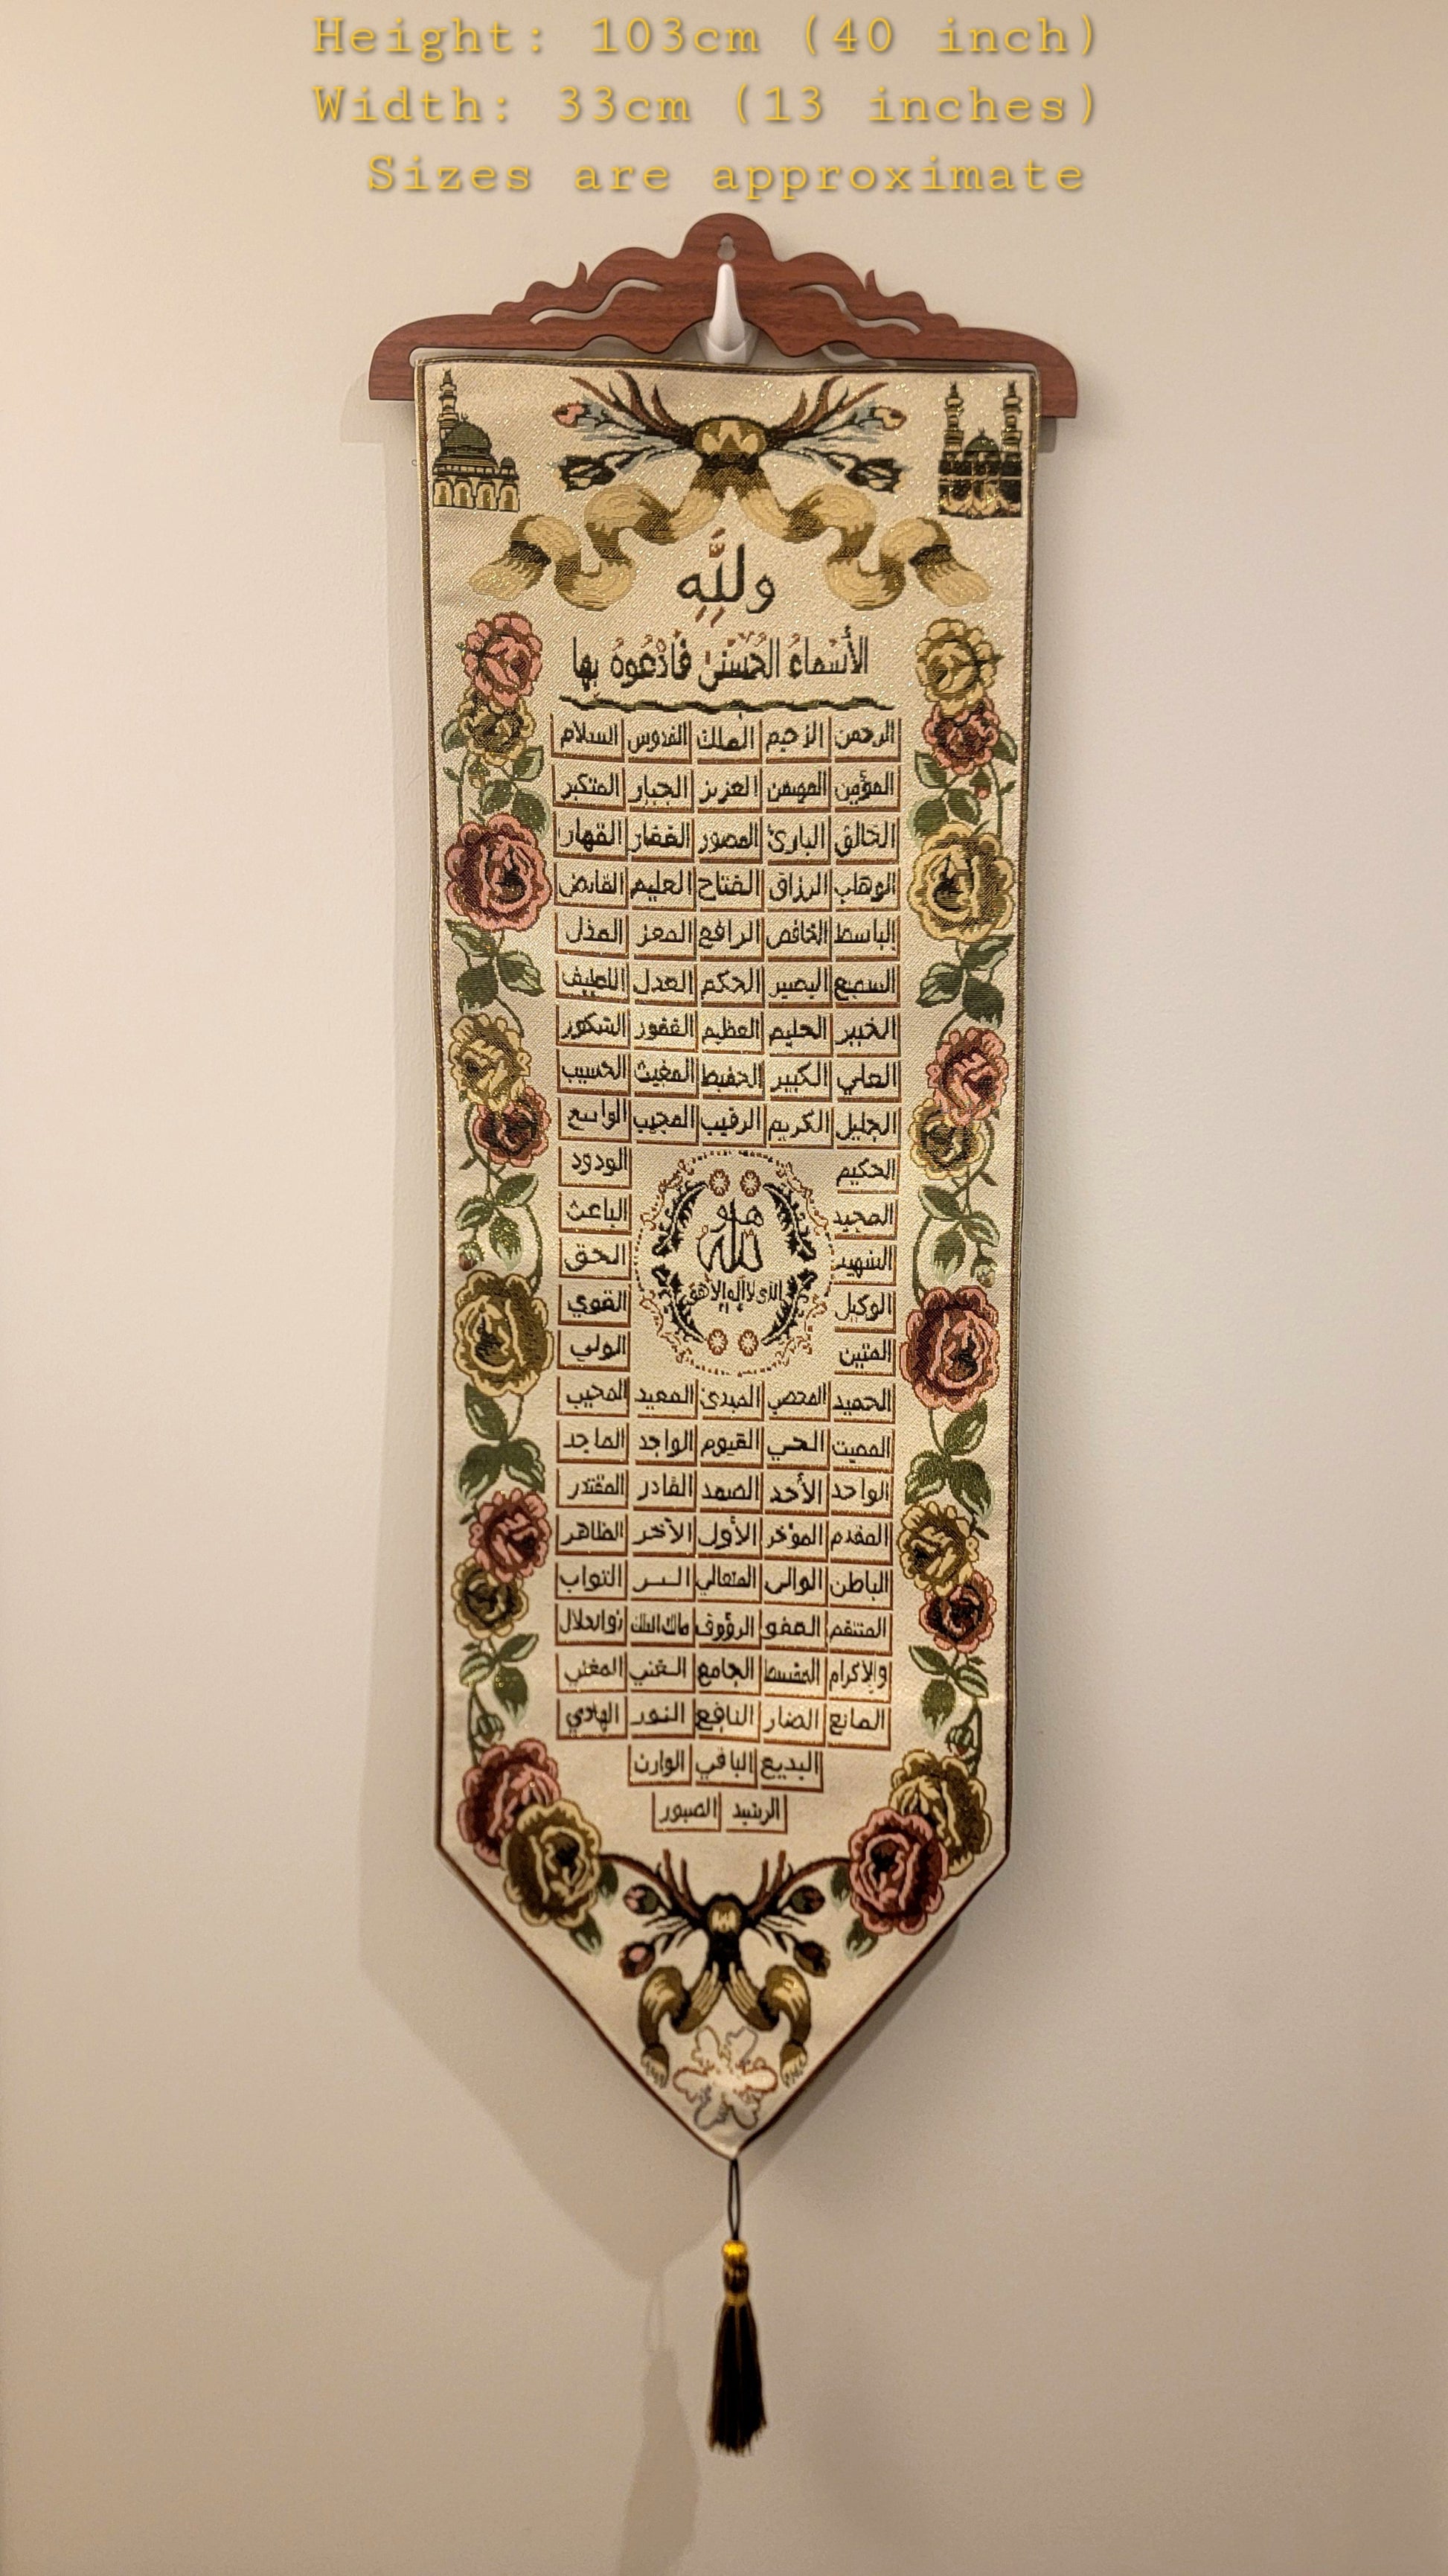 Height: 103cm (40 inch)
Width: 33cm (13 inches)
Sizes are approximate
وللَّهِ
الأَسْمَاءُ الحُسْنىٰ فَادْعُوهُ بِها
الرحمن الرحيم الملك القدوس السلام
المؤمن المهيمن العزيز الجبار المتكبر
الخالق البارئ المصور الغفار القهار
الوهاب الرزاق الفتاح العليم القابض
الباسط الخافض الرافع المعز المذل
السميع البصير الحكم العدل اللطيف
الخبير الحليم العظيم الغفور الشكور
العلي الكبير الحفيظ المغيث الحسيب
الجليل الكريم الرقيب المجيب الواسع
الحكيم الودود
المجيد الباعث
هو
الله
الذي لا إله إلا هو
الشهيد الحق
الوكيل القوي
المتين الولي
الحميد المحصي المبدئ المعيد المحيي
المميت الحي القيوم الواجد الماجد
الواحد الأحد الصمد القادر المقتدر
المقدم المؤخر الأول الآخر الظاهر
الباطن الوالي المتعالي البر التواب
المنتقم العفو الرؤوف مالك الملك ذو الجلال
والإكرام المقسط الجامع الغني المغني
المانع الضار النافع النور الهادي
البديع الباقي الوارث
الرشيد الصبور